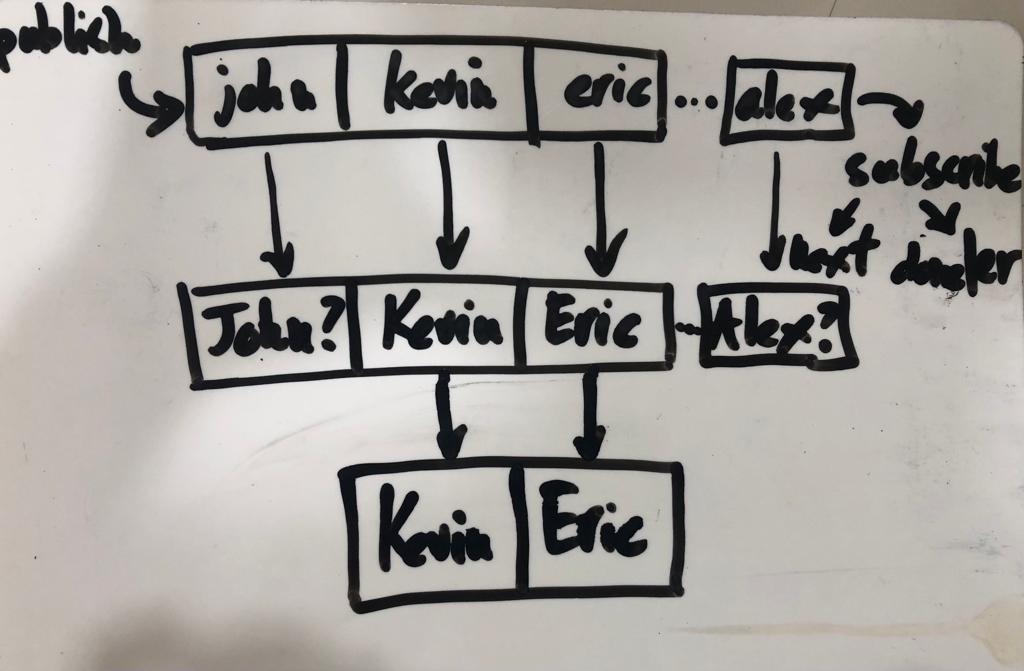 publish
john Kevin eric ... alex
subscribe
next
John? Kevin Eric ... Alex?
Kevin Eric